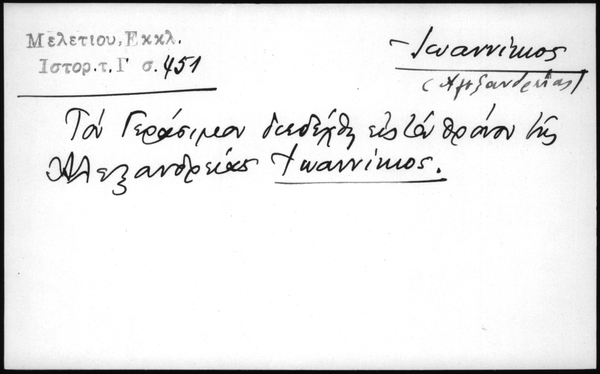 Μελετίου, Εκκλ.
Ἱστορ.τ.Γ' σ.451
Ἰωαννίκιος
(Ἀλεξανδρείας)
Τὸν Γεράσιμον διεδέχθη εἰς τὸν θρόνον τῆς
Ἀλεξανδρείας Ἰωαννίκιος.